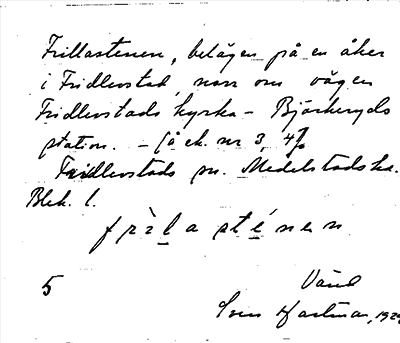 Frillastenen, belägen på en åker
i Fridlevstad, norr om vägen
Fridlevstads kyrka - Björkeryds
station. - (å ek. nr 3, 4%
Fridlevstads sn. Medelstads hd.
Blek. l.
frìl̲a sté̲nen
5
Vänd
Sven Hartman, 192